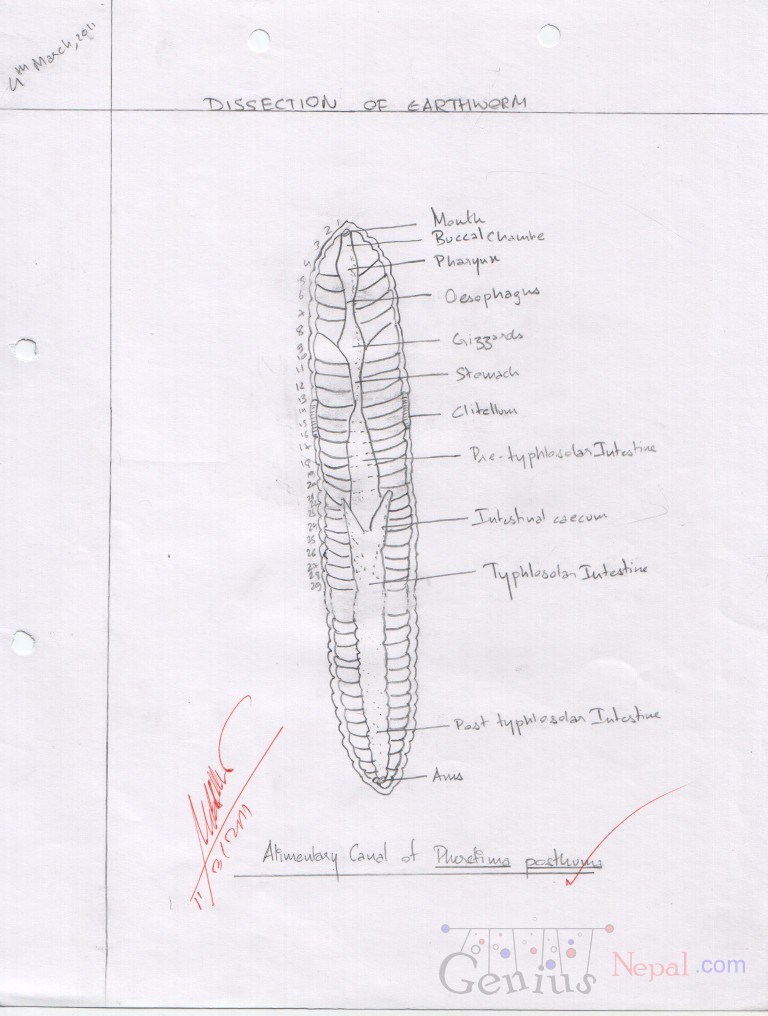 4th March, 2011
DISSECTION OF EARTHWORM
1
2
3
4
5
6
7
8
9
10
11
12
13
14
15
16
17
18
19
20
21
22
23
24
25
26
27
28
29
Mouth
Buccal Chambe
Pharynx
Oesophagus
Gizzards
Stomach
Clitellum
Pre-typhlosolar Intestine
Intestinal caecum
Typhlosolar Intestine
Post typhlosolar Intestine
Anus
Alimentary Canal of Pheretima posthuma
Genius Nepal.com